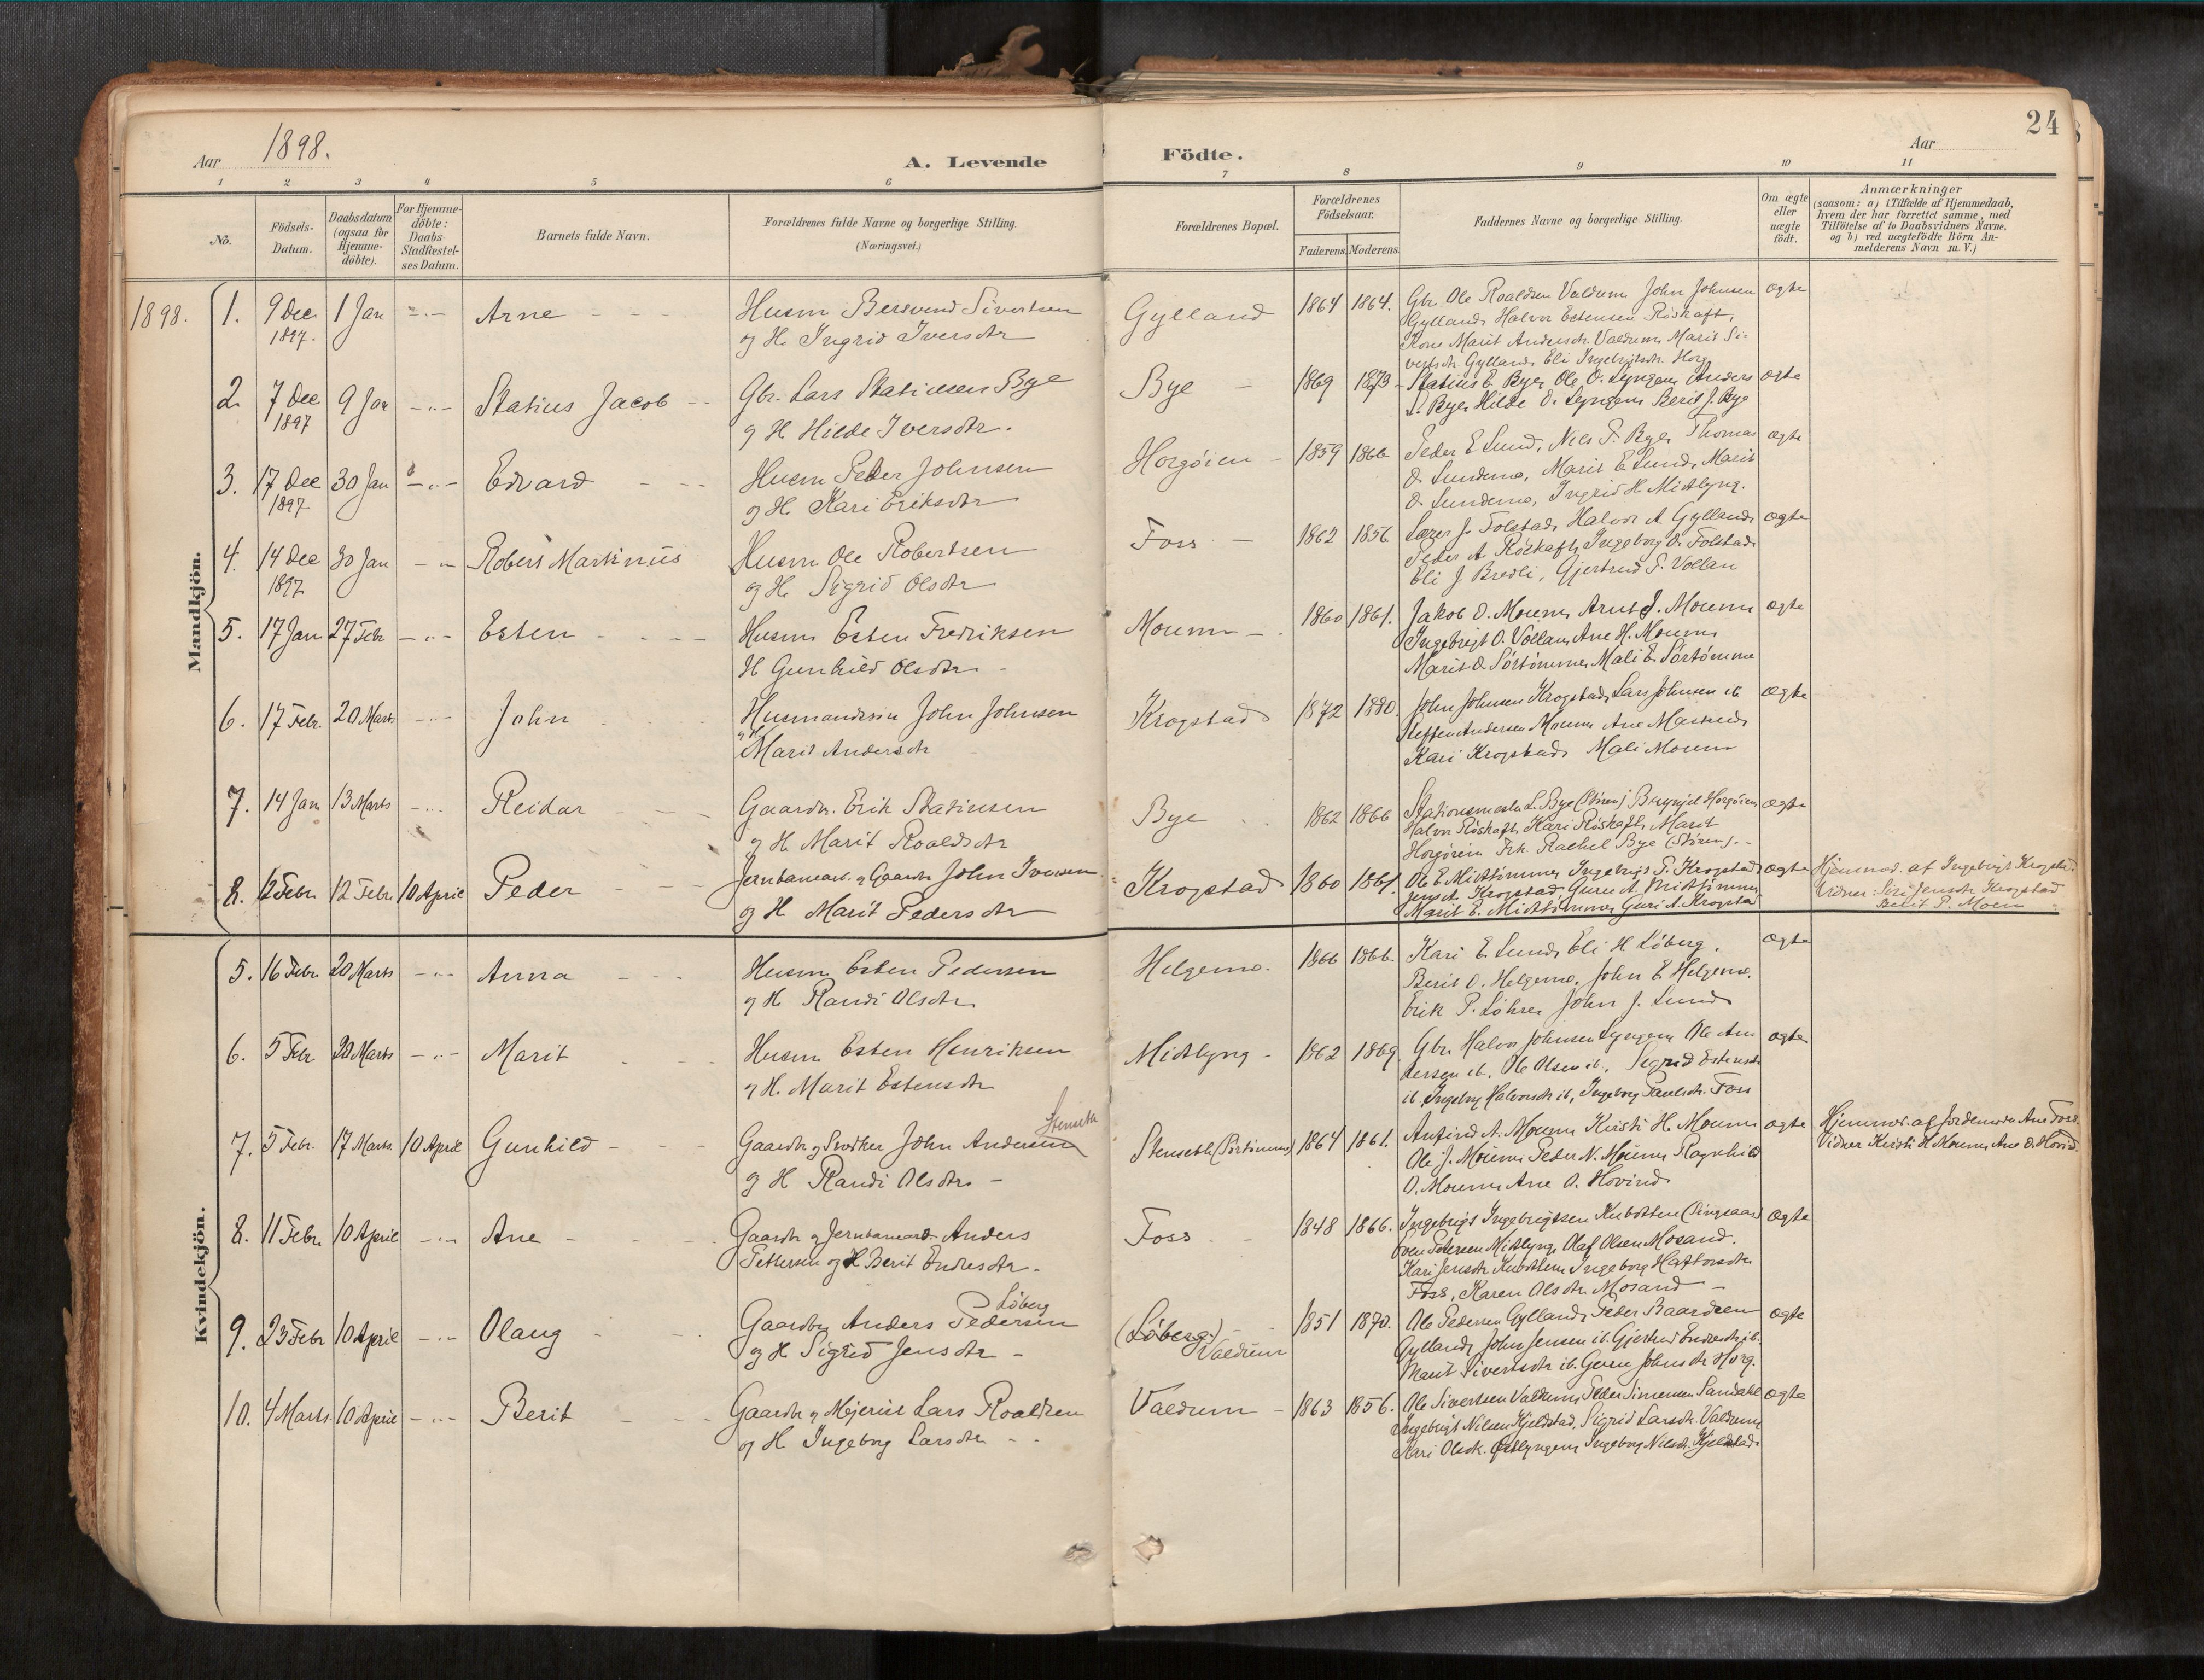 24
Aar 1898.
A. Levende Födte.
Aar
1 2 3 4 5 6 7 8 9 10 11
No.
Födsels-Datum.
Daabsdatum (ogsaa for Hjemme-döbte).
For Hjemme-döbte: Daabs-Stadfæstel-ses Datum.
Barnets fulde Navn.
Forældrenes fulde Navne og borgerlige Stilling. (Næringsvei.)
Forældrenes Bopæl.
Forældrenes Födselsaar.
Faderens. Moderens.
Faddernes Navne og borgerlige Stilling.
Om ægte eller uægte födt.
Anmærkninger
(saasom: a) i Tilfælde af Hjemmedaab,
hvem der har forrettet samme, med
Tilföielse af to Daabsvidners Navne,
og b) ved uægtefödte Börn An-
melderens Navn m.V.)
Mandkjön.
1898. 1. 9 Dec 1897. 1 Jan -"- Arne
Husm Bersvend Sivertsen
og H. Ingrid Iversdtr
Gylland 1864 1864.
Gbr. Ole Roaldsen Valdum, John Johnsen
Gylland, Halvor Estensen Röskaft,
Kone Marit Andersdtr. Valdum, Marit Si-
vertsdtr Gylland, Eli Ingebrigtsdtr. Horg
ægte
2. 7 Dec 1897 9 Jan -"- Statius Jacob
Gbr. Lars Statiussen Bye
og H Hilde Iversdtr.
Bye 1869 1873
Statius E. Bye, Ole O. Lyngen, Anders
L. Bye, Hilde O. Lyngen, Berit J. Bye
ægte
3. 17 Dec 1897 30 Jan -"- Edvard
Husm Peder Johnsen
og H. Kari Eriksdtr
Horgöien 1859 1866
Peder E Lund, Nils P. Bye, Thomas
O. Sundemo, Marit E Lund, Marit
O. Sundemo, Ingrid H. Midtlyng.
ægte
4. 14 Dec 1897 30 Jan -"- Robert Martinus
Husm Ole Robertsen
og H. Sigrid Olsdtr
Foss 1862 1856
J. Folstad, Halvor A. Gylland,
Peder A. Röskaft, Ingeborg O. Folstad,
Eli J Bredli, Gjertrud P. Vollan
ægte
5. 17 Jan 27 Febr -"- Esten
Husm Esten Fredriksen
H Gunhild Olsdtr
Mounn 1860 1861.
Jakob O. Mounn, Arnt J. Mounn
Ingebrigt O. Vollan, Ane H. Mounn
Marit O Sörtömme, Mali E. Sörtömme
ægte
6. 17 Febr. 20 Marts -"- John
Husmandssön John Johnsen
og H Marit Andersdtr
Krogstad 1872 1880.
John Johnsen Krogstad, Lars Johnsen ib.
Steffen Andersen Mounn, Ane
Kari Krogstad, Mali Mounn
ægte
7. 14 Jan 13 Marts -"- Reidar
Gaardbr. Erik Statiussen
og H. Marit Roaldsdtr
Bye 1862 1866
Stationsmester L. Bye (Stören) Horgöien
Halvor Röskaft, Kari Röskaft, Marit
Horgöien Frk. Rachel Bye (Stören).
ægte
8. 12 Febr. 12 Febr. 10 April Peder
Jernbanearb. og Gaardbr John Iversen
og H. Marit Pedersdtr
Krogstad 1860 1861.
Ole E Midttömme, Ingebrigt P. Krogstad,
Jens Krogstad Guru A. Midttömme
Marit E. Midttömme, Guri A. Krogstad
ægte
Hjemmed. af Ingebrigt Krogstad.
Vidner: Siri Jensdtr Krogstad
Berit P. Moen
Kvindekjön.
5. 16 Febr. 20 Marts -"- Anna
Husm Esten Pedersen
og H Randi Olsdtr
Helgemo. 1866 1866.
Kari E Lund, Eli H Löberg.
Berit O. Helgemo, John E. Helgemo.
Erik P. Löhre, John J. Lund
ægte
6. 5 Febr 20 Marts -"- Marit
Husm Esten Henriksen
og H. Marit Estensdtr
Midtlyng 1862 1869.
Gbr. Halvor Johnsen Lyngen, Ole An-
dersen ib. Ole Olsen ib. Sigrid Estensdtr
ib, Ingebrg Halvorsdtr ib, Ingeborg Paulsdtr. Foss
ægte
7. 5 Febr. 17 Marts. 10 April Gunhild
Gaardbr og Snedker John Andersen Stenseth
og H Randi Olsdtr.
Stenseth (Sörtömme) 1864 1861.
Anfind A. Mounn, Kirsti H. Mounn
Ole J. Mounn, Peder N. Mounn, Ragnhild
O. Mounn, Ane O. Hovind
ægte
Hjemmed. af Jordemoder Ane Foss.
Vidner Kirsti H Mounn, Ane O. Hovind.
8. 11 Febr. 10 April -"- Ane
Gaardbr og Jernbanearb Anders
Pettersen og H Berit Endresdtr.
Foss 1848 1866.
Ingebrigt Ingebrigtsen Kubotten (Singsaas)
Sven Petersen Midtlyng, Olaf Olsen Mosand.
Kari Jensdtr Kubotten, Ingeborg Haftorsdtr
Foss, Karen Olsdtr Mosand
ægte
9. 23 Febr 10 April -"- Olaug
Gaardbr Anders Pedersen Löberg
og H Sigrid Jensdtr
(Löberg) Valdum 1851 1870.
Ole Pedersen Gylland, Peder Baardsen
Gylland, John Jensen ib. Gjertrud Endresdtr ib.
Marit Sivertsdtr ib. Guru Johnsdtr Horg.
ægte
10. 4 Marts. 10 April -"- Berit
Gaardbr og Mejerist Lars Roaldsen
og H Ingeborg Larsdtr
Valdum 1863 1856.
Ole Sivertsen Valdum, Peder Simensen Sandahl
Ingebrigt Nilsen Kjeldstad, Sigrid Larsdtr. Valdum
Kari Olsdtr. Ingeborg Nilsdtr. Kjeldstad
ægte